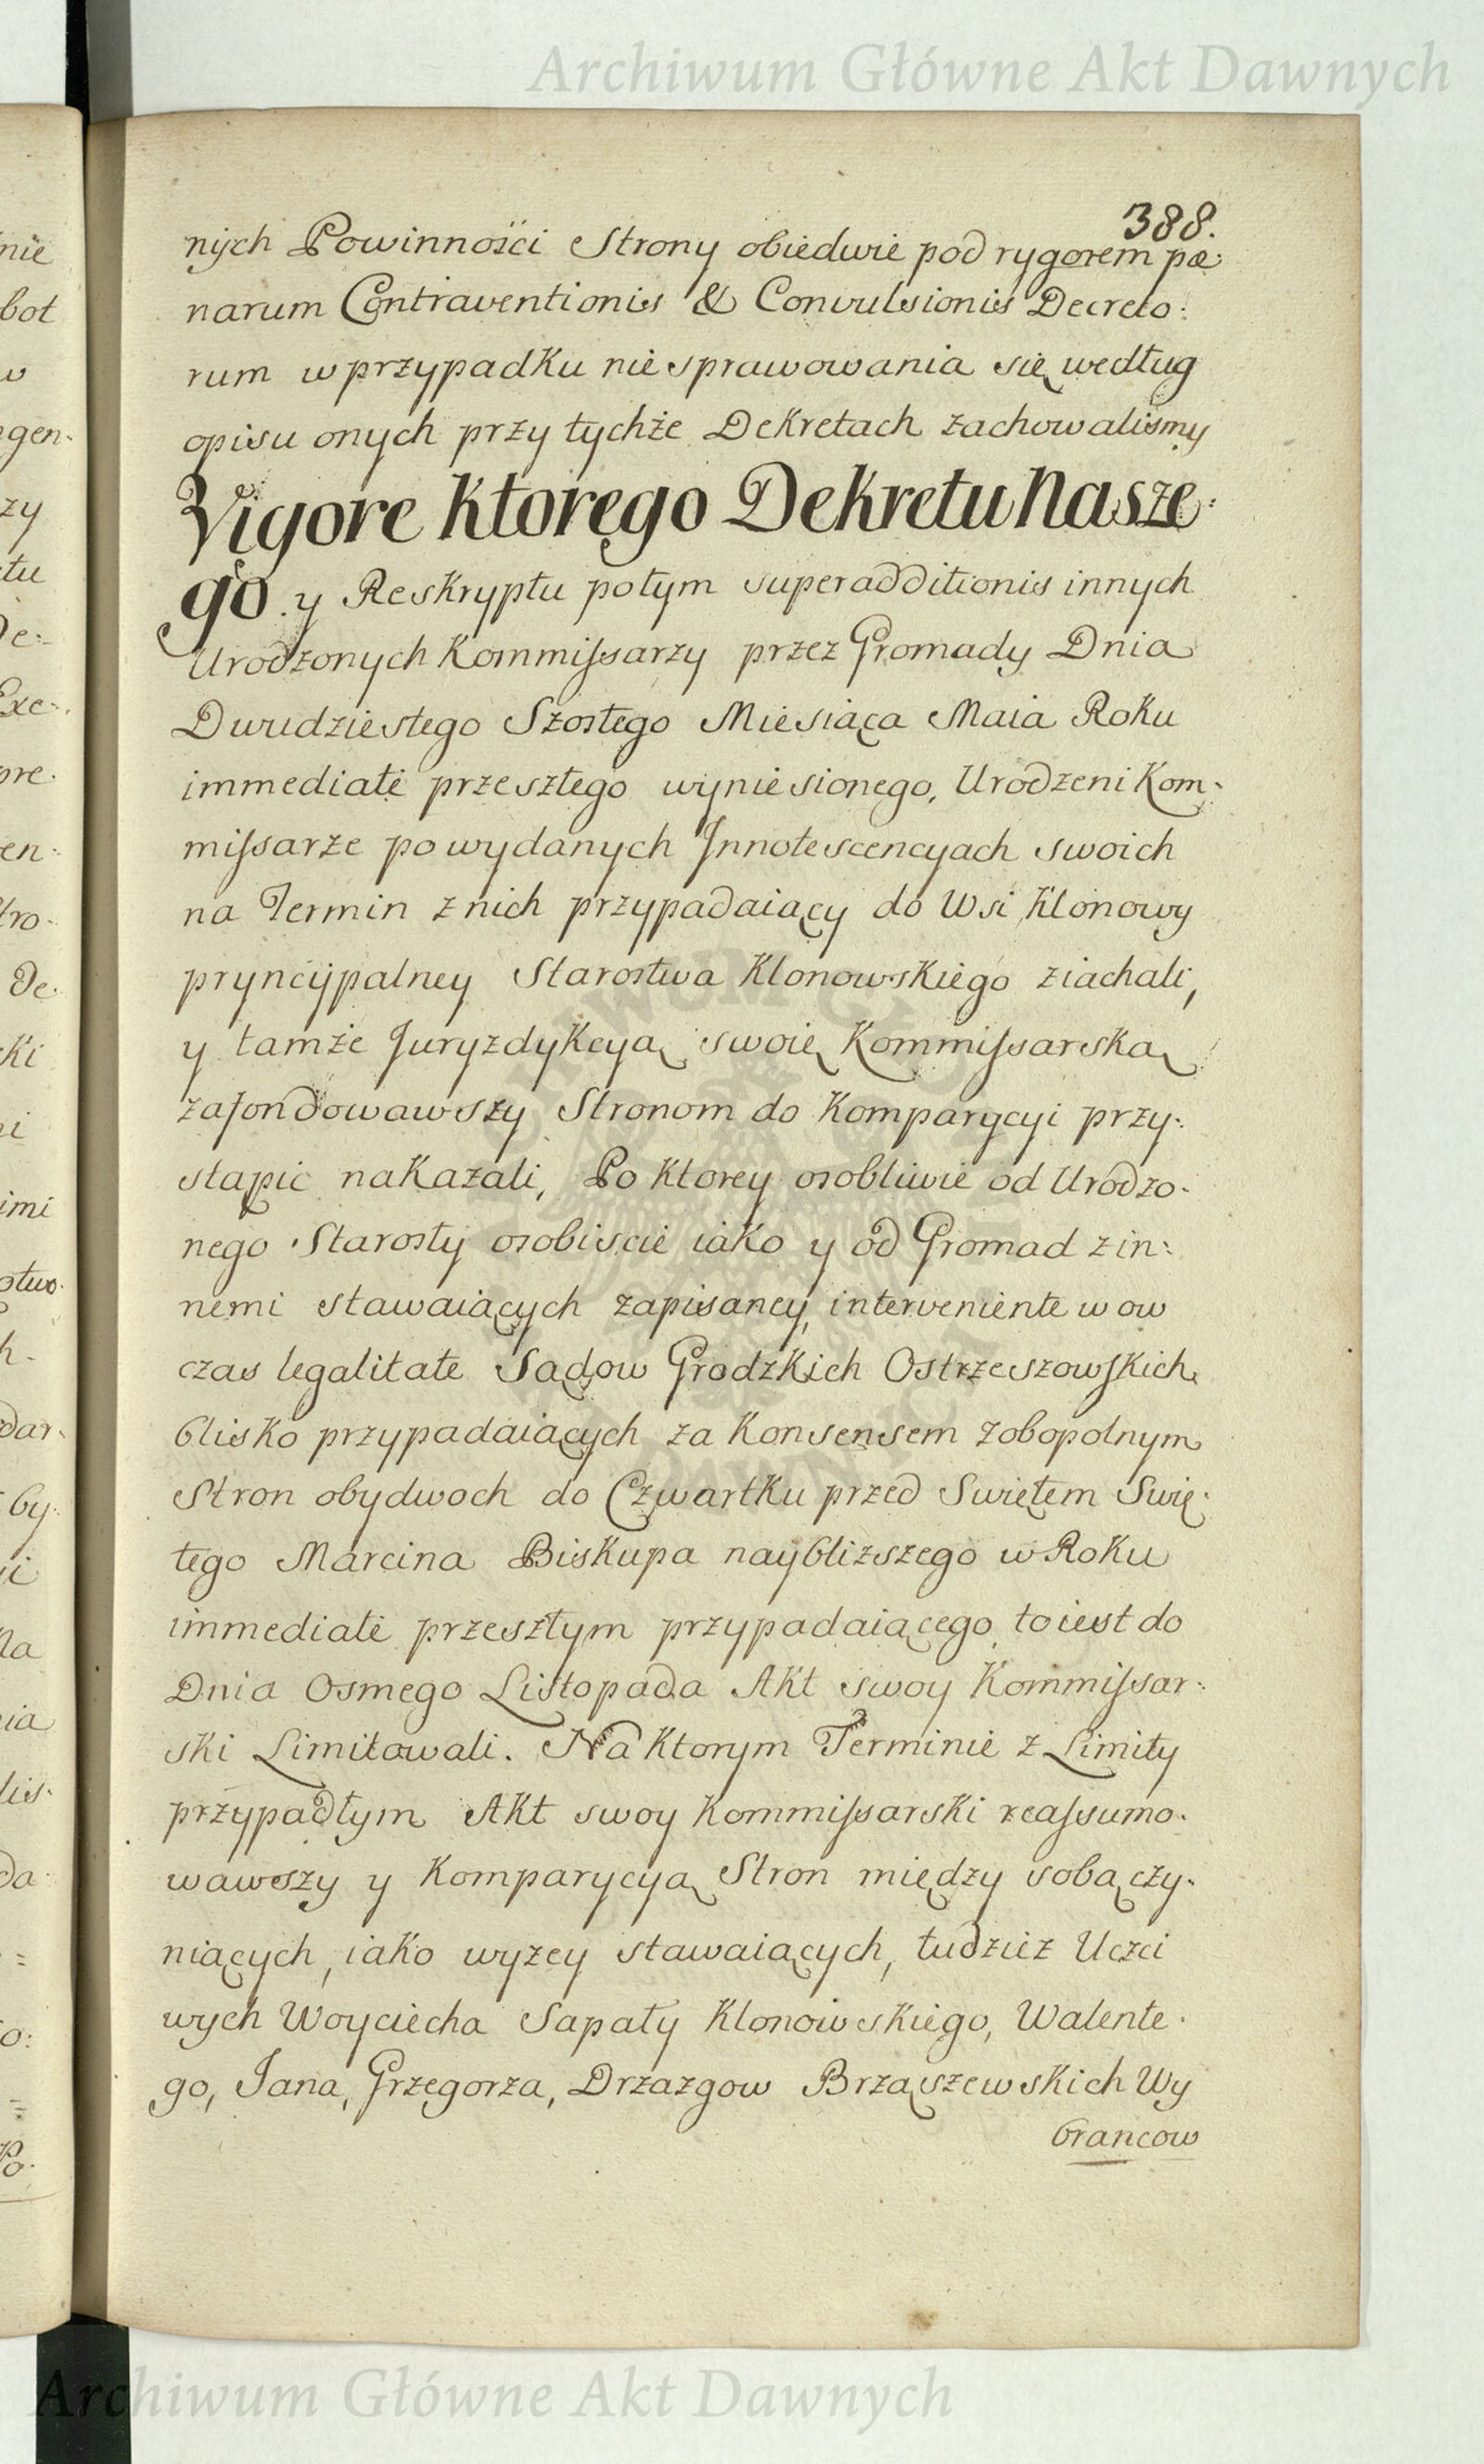 Archiwum Główne Akt Dawnych
388.
nych Powinności Strony obiedwie pod rygorem pæ:
narum Contraventionis & Convulsionis Decreto:
rum w przypadku nie sprawowania się według
opisu onych przy tychże Dekretach zachowalismy
Vigore Ktorego Dekretu Nasze:
go y Reskryptu potym superadditionis innych
Urodzonych Kommissarzy przez Gromady Dnia
Dwudziestego Szostego Miesiąca Maia Roku
immediate przeszłego wyniesionego, Urodzeni Kom:
missarze po wydanych Innotescencyach swoich
na Termin z nich przypadaiący do Wsi Klonowy
pryncypalney Starostwa Klonowskiego ziachali,
y tamże Juryzdykcyą swoię Kommissarską
zafondowawszy Stronom do Komparycyi przy:
stąpic nakazali, Po Ktorey osobliwie od Urodzo:
nego Starosty osobiscie iako y od Gromad z in:
nemi stawaiących zapisaney, interveniente w ow
czas legalitate Sądow Grodzkich Ostrzeszowskich
blisko przypadaiących za Konsensem zobopolnym
Stron obydwoch do Czwartku przed Swiętem Swię:
tego Marcina Biskupa naybliższego w Roku
immediate przeszłym przypadaiącego to iest do
Dnia Osmego Listopada Akt swoy Kommissar:
ski Limitowali. Na Ktorym Terminie z Limity
przypadłym Akt swoy Kommissarski reassumo:
wawszy y Komparycyą Stron między sobą czy:
niących, iako wyzey stawaiących, tudzież Uczci
wych Woyciecha Sapaty Klonowskiego, Walente:
go, Jana, Grzegorza, Drzazgow Brząszewskich Wy
brancow
Archiwum Główne Akt Dawnych